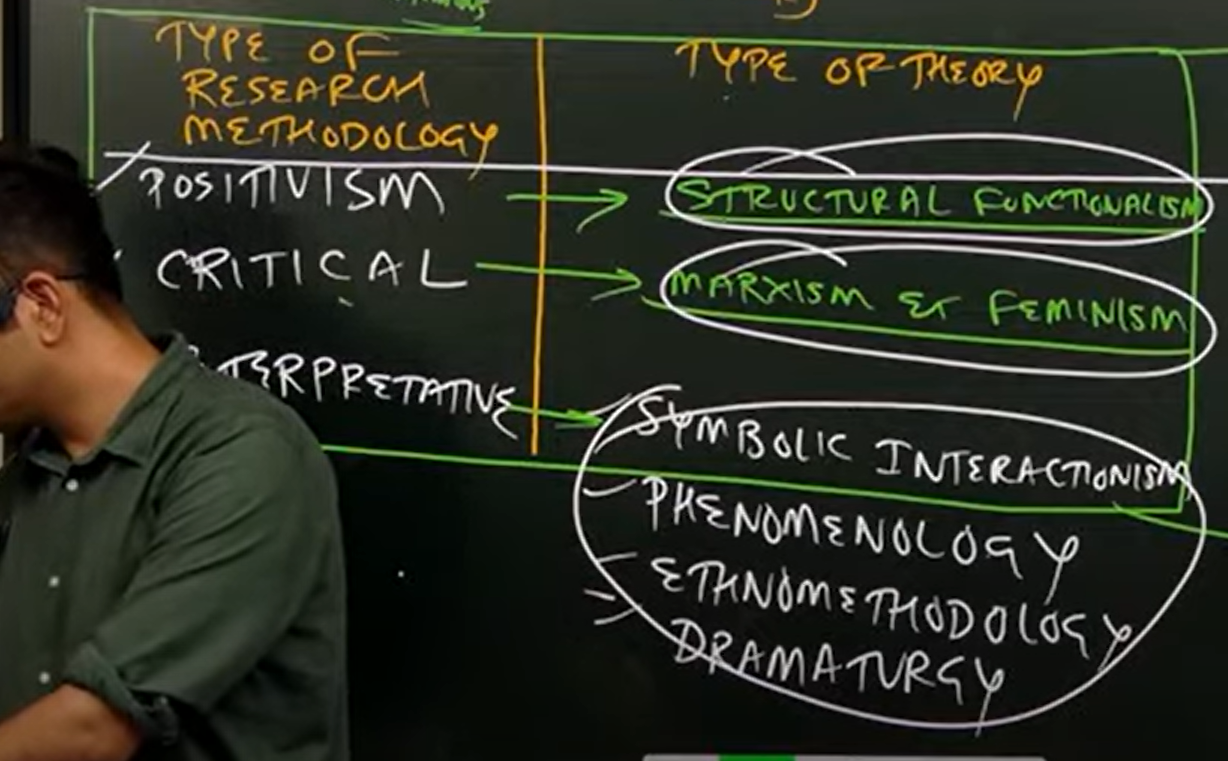 TYPE OF
RESEARCH
METHODOLOGY
TYPE OF THEORY
POSITIVISM → STRUCTURAL FUNCTIONALISM
CRITICAL → MARXISM & FEMINISM
TERPRETATIVE → SYMBOLIC INTERACTIONISM
PHENOMENOLOGY
ETHNOMETHODOLOGY
DRAMATURGY